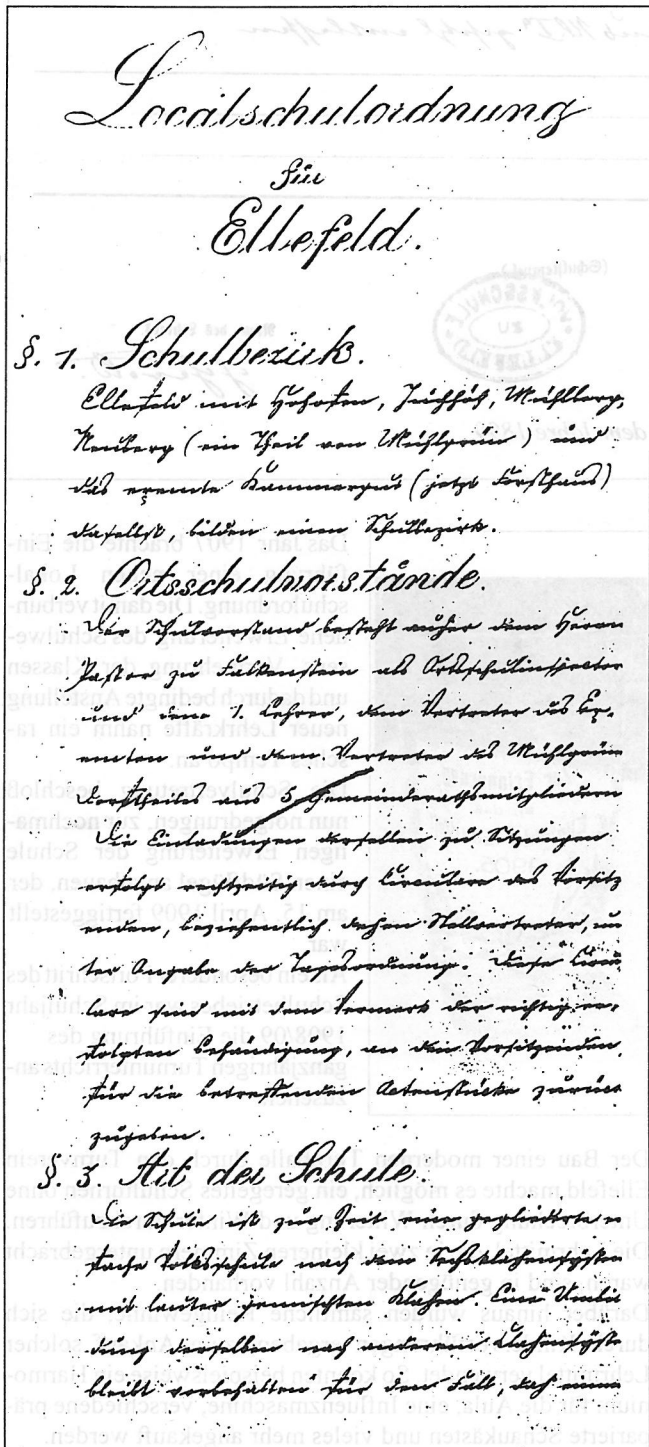 Localschulordnung
für
Ellefeld.
§. 1. Schulbezirk.
Ellefeld mit Hohofen, Juchhöh, Mühlberg,
Neuberg (ein Theil von Mühlgrün) und
das exemte Kammergut (jetzt Forsthaus)
daselbst, bilden einen Schulbezirk.
§. 2. Ortsschulvorstände.
Der Schulvorstand besteht außer dem Herrn
Pastor zu Falkenstein als Ortsschulinspector
und dem 1. Lehrer, dem Vertreter des Ex-
emten und dem Vertreter des Mühlgrüner
Dorftheiles aus 3 Gemeinderathsmitgliedern
Die Einladungen derselben zu Sitzungen
erfolgt rechtzeitig durch Circulare des Vorsitz
enden, beziehentlich dessen Stellvertreter, un
ter Angabe der Tagesordnung. Diese Circu
lare sind mit dem Vermerk der richtig er-
folgten Behändigung, an den Vorsitzenden,
für die betreffenden Actenstücke zurück
zugeben.
§. 3. Art der Schule.
Die Schule ist zur Zeit eine gegliederte ein
fache Volksschule nach dem Sechsklassensystem
mit lauter gemischten Klassen. Eine Umbil
dung derselben nach anderem Klassensyste
bleibt vorbehalten für den Fall, daß eine